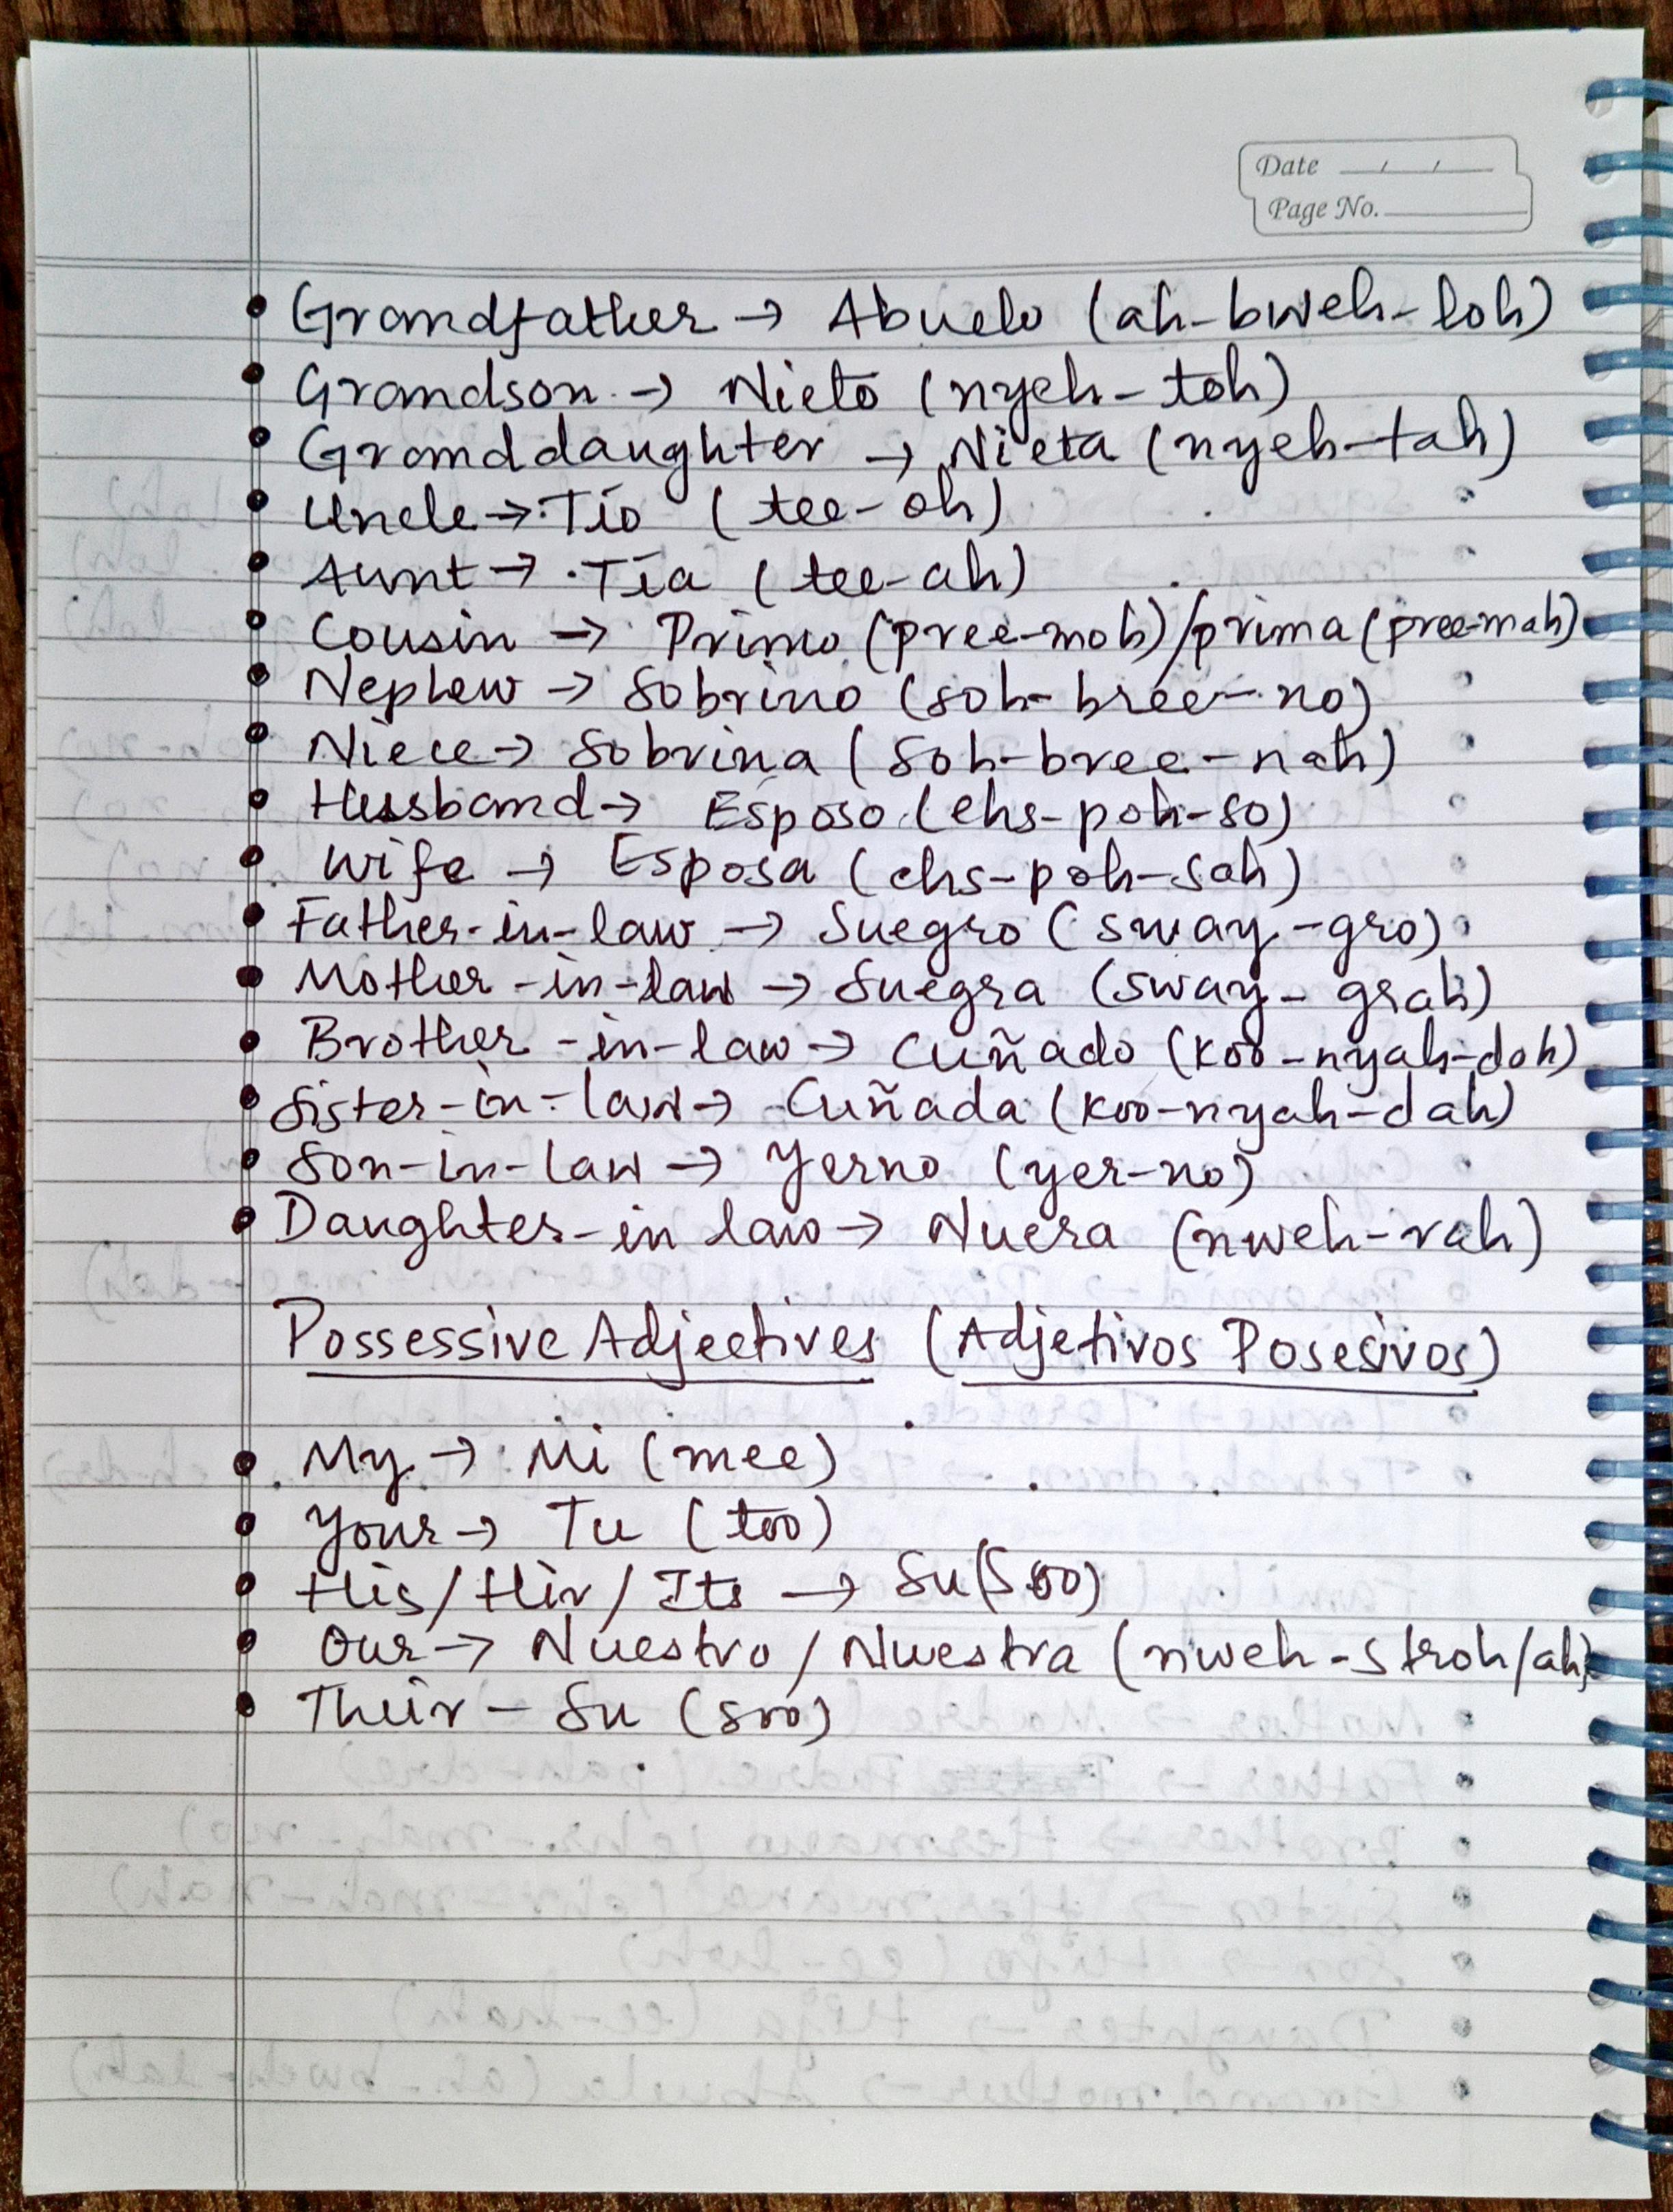 Date / /
Page No.
• Grandfather → Abuelo (ah-bweh-loh)
• Grandson → Nieto (nyeh-toh)
• Granddaughter → Nieta (nyeh-tah)
• Uncle → Tío (tee-oh)
• Aunt → Tía (tee-ah)
• Cousin → Primo (pree-moh)/prima (pree-mah)
• Nephew → Sobrino (soh-bree-no)
• Niece → Sobrina (soh-bree-nah)
• Husband → Esposo (ehs-poh-so)
• Wife → Esposa (ehs-poh-sah)
• Father-in-law → Suegro (sway-gro)
• Mother-in-law → Suegra (sway-grah)
• Brother-in-law → Cuñado (koo-nyah-doh)
• Sister-in-law → Cuñada (koo-nyah-dah)
• Son-in-law → Yerno (yer-no)
• Daughter-in law → Nuera (nweh-rah)
Possessive Adjectives (Adjetivos Posesivos)
• My → Mi (mee)
• Your → Tu (too)
• His/Hir/Its → Su (Soo)
• Our → Nuestro/Nuestra (nweh-stroh/ah)
• Their – Su (soo)